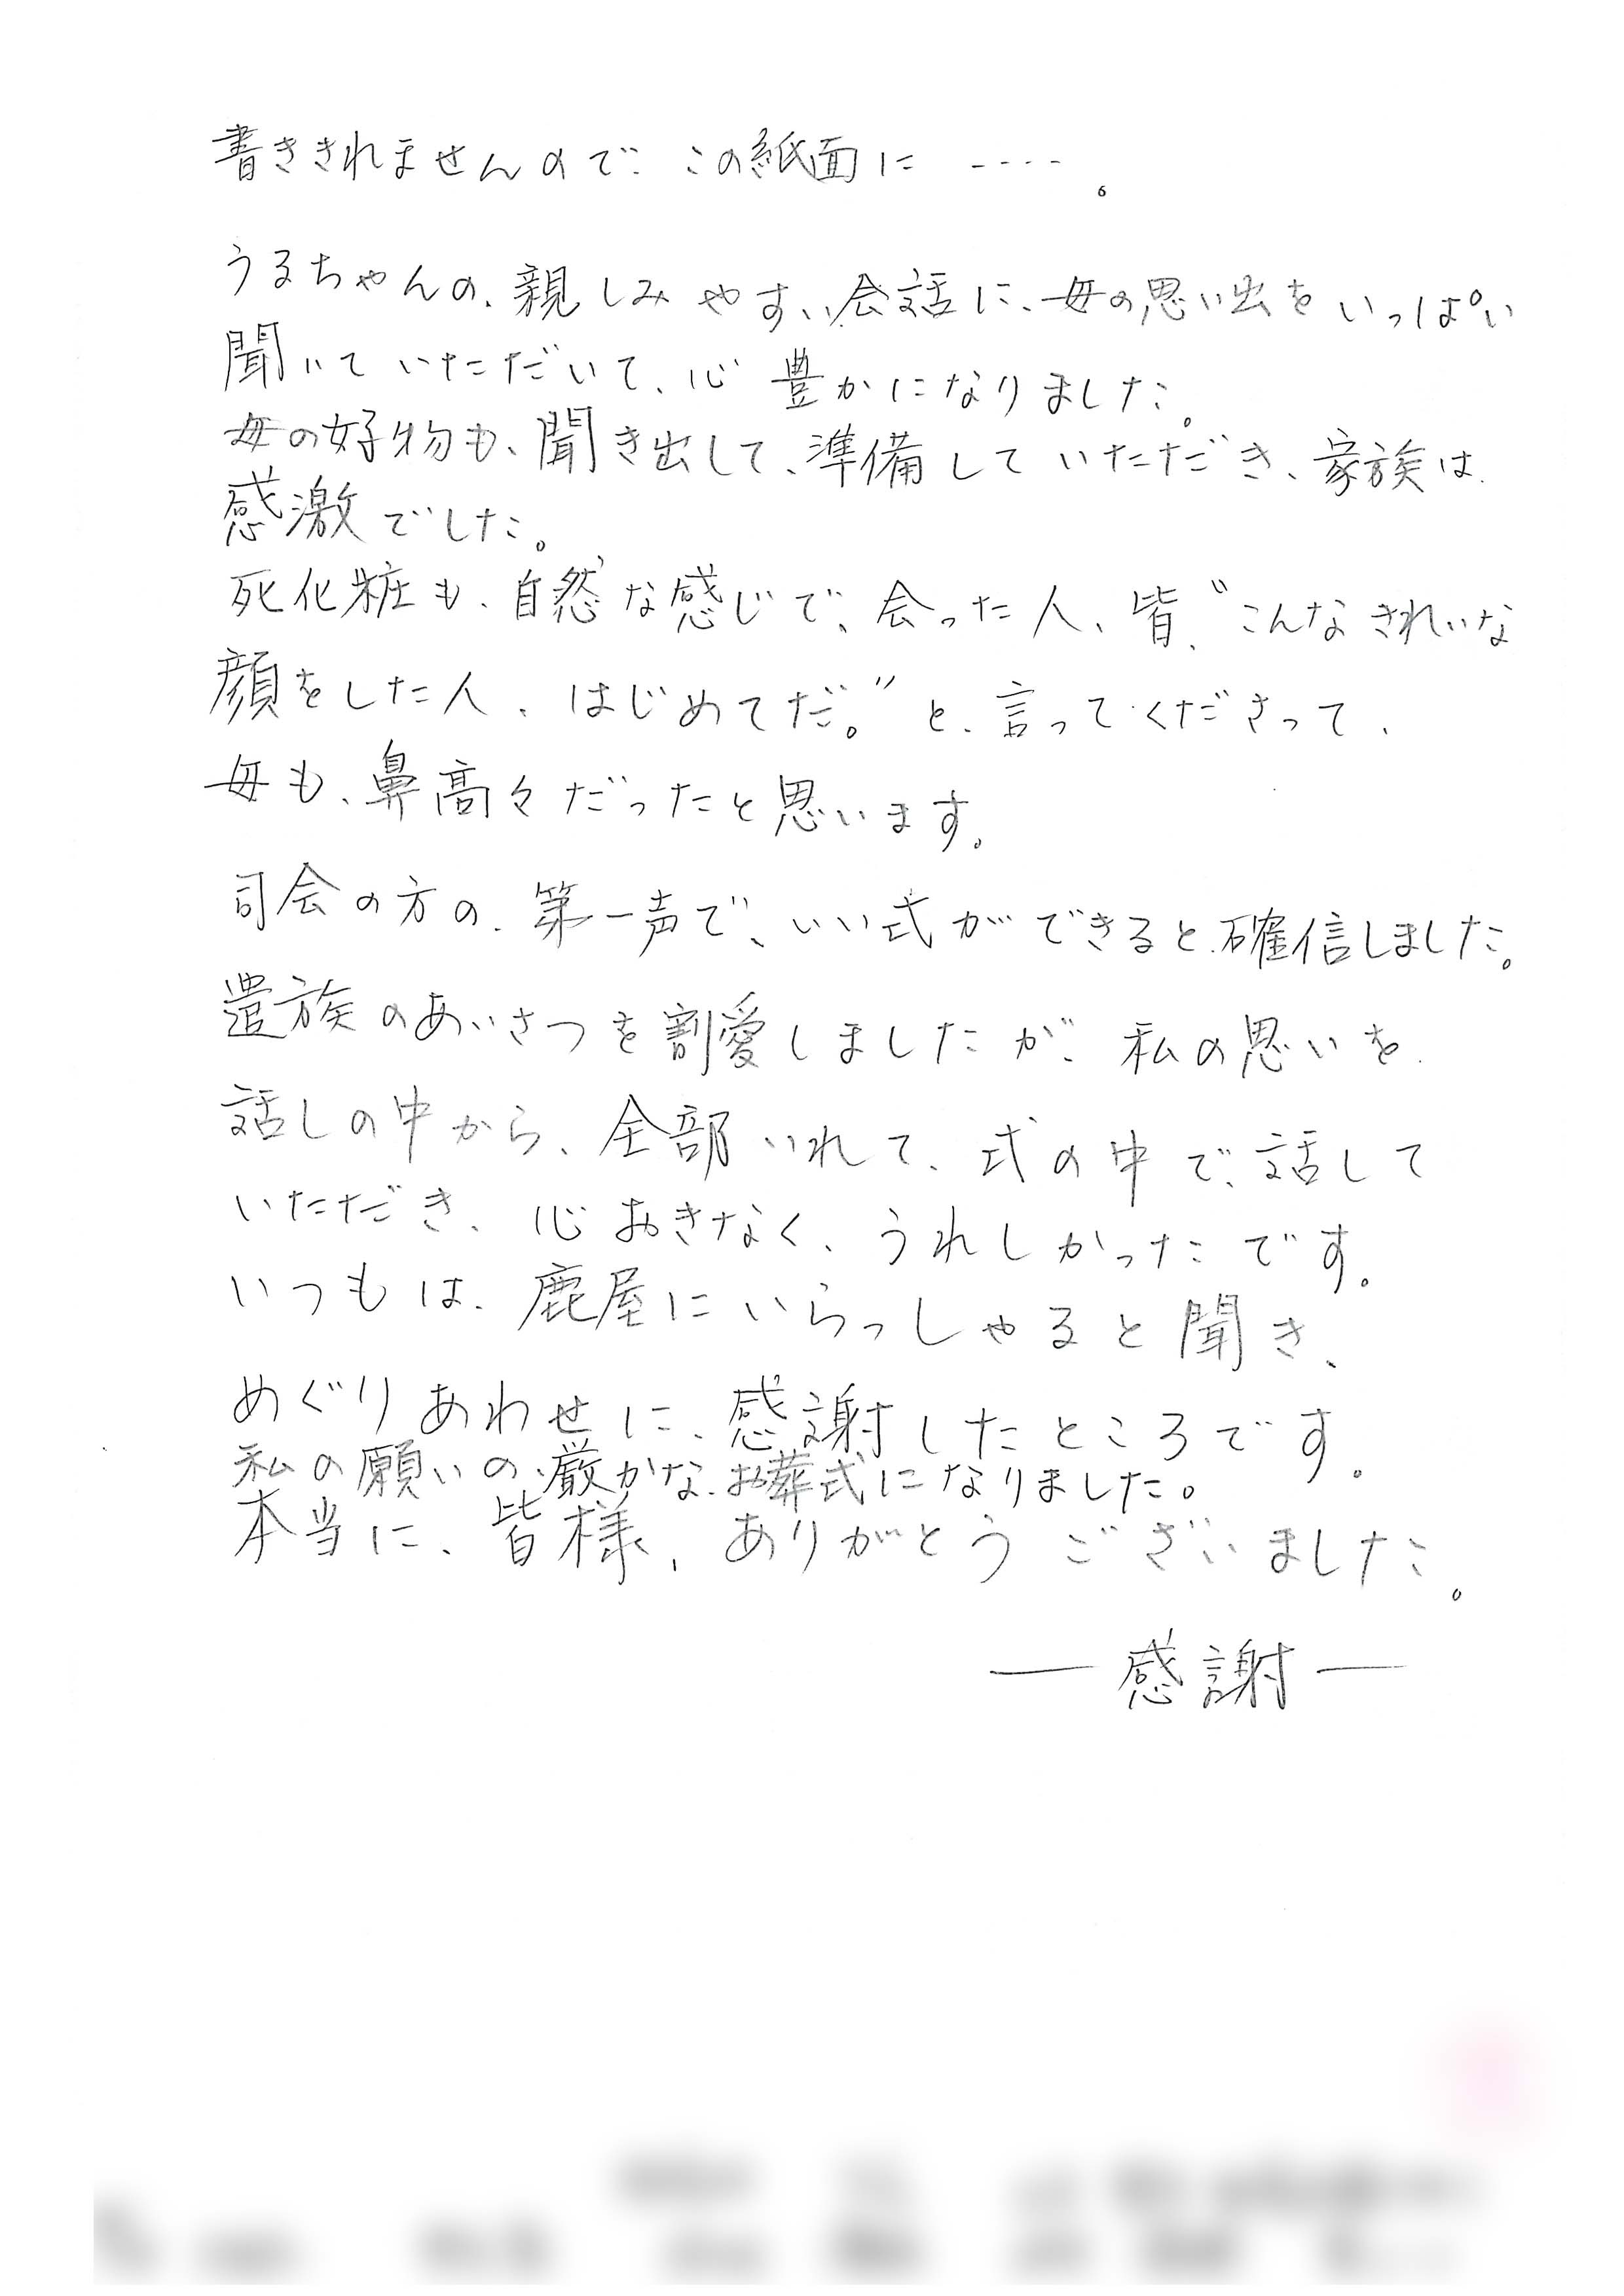 書ききれませんので、この紙面に ‐‐‐‐。
うるちゃんの、親しみやすい会話に、母の思い出をいっぱい
聞いていただいて、心豊かになりました。
母の好物も、聞き出して、準備していただき、家族は
感激でした。
死化粧も、自然な感じで、会った人、皆、〝こんなきれいな
顔をした人、はじめてだ。〟と、言ってくださって、
母も、鼻高々だったと思います。
司会の方の、第一声で、いい式ができると、確信しました。
遺族のあいさつを割愛しましたが、私の思いを
話しの中から、全部いれて、式の中で、話して
いただき、心おきなく、うれしかったです。
いつもは、鹿屋にいらっしゃると聞き、
めぐりあわせに、感謝したところです。
私の願いの、厳かな、お葬式になりました。
本当に、皆様、ありがとうございました。
―感謝―